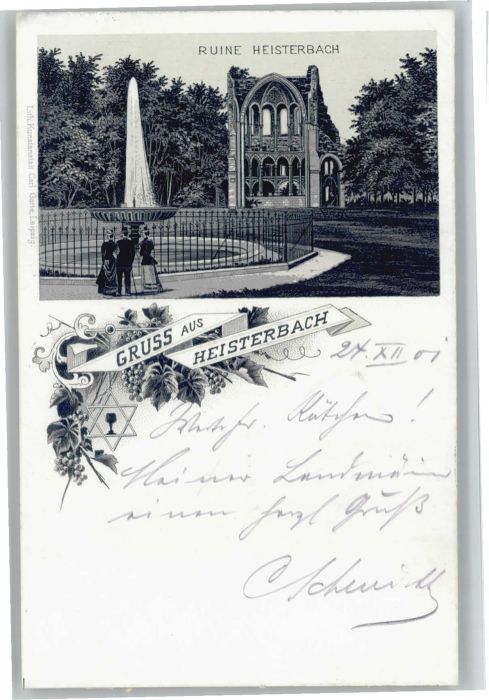 RUINE HEISTERBACH
Lith. Kunstanstalt Carl Garte, Leipzig.
GRUSS AUS
HEISTERBACH
24. XII 01
Kätchen!
Meiner Landmännin
einen herzl Gruß
CSchmidt